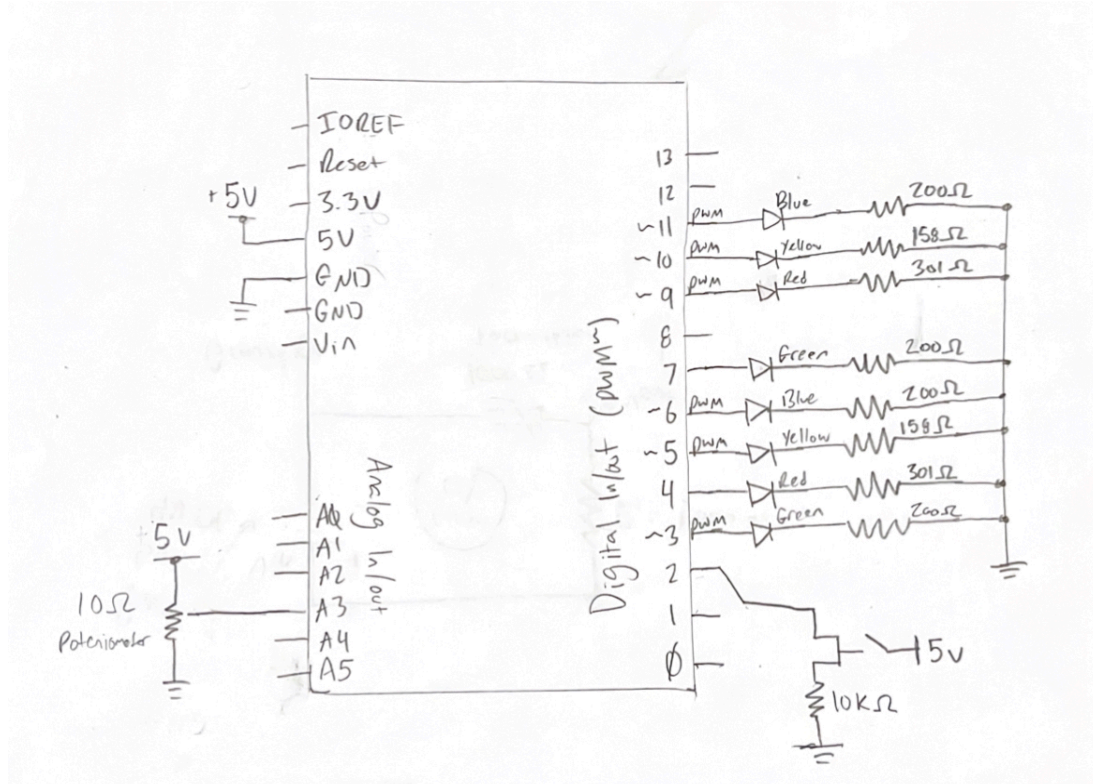 IOREF
Reset
3.3V
5V
GND
GND
Vin
+5V
Analog In/out
AØ
A1
A2
A3
A4
A5
+5V
10Ω
Poteniometor
Digital In/out (PWM~)
13
12
~11 PWM Blue 200Ω
~10 PWM Yellow 158Ω
~9 PWM Red 301Ω
8
7 Green 200Ω
~6 PWM Blue 200Ω
~5 PWM Yellow 158Ω
4 Red 301Ω
~3 PWM Green 200Ω
2
1
Ø
5v
10KΩ